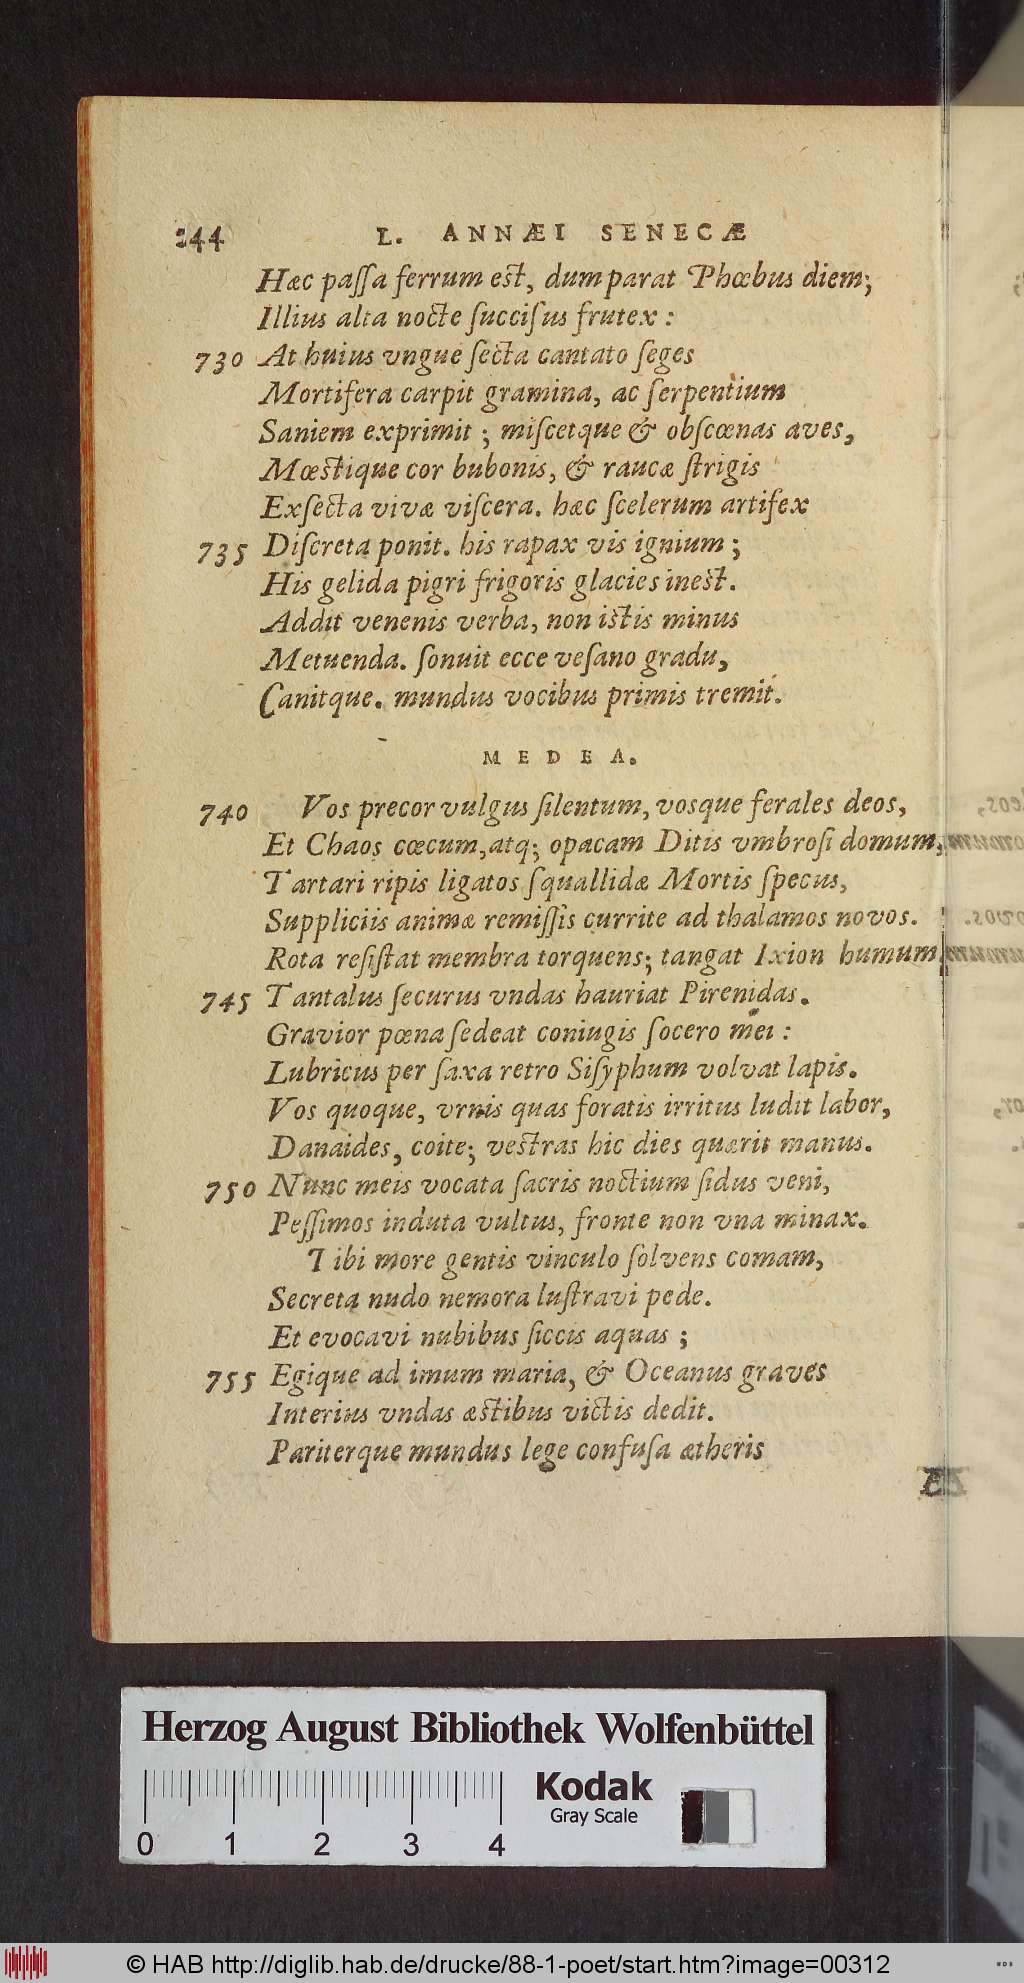 244 L. ANNÆI SENECÆ
Hæc paſſa ferrum est, dum parat Phœbus diem;
Illius alta nocte ſucciſus frutex:
730 At huius vngue ſecta cantato ſeges
Mortifera carpit gramina, ac ſerpentium
Saniem exprimit; miſcetque & obſcœnas aves,
Mœstique cor bubonis, & raucæ ſtrigis
Exſecta vivæ viſcera. hæc ſcelerum artifex
735 Diſcreta ponit. his rapax vis ignium;
His gelida pigri frigoris glacies inest.
Addit venenis verba, non istis minus
Metuenda. ſonuit ecce veſano gradu,
Canitque. mundus vocibus primis tremit.
MEDEA.
740 Vos precor vulgus ſilentum, vosque ferales deos,
Et Chaos cœcum, atq; opacam Ditis vmbroſi domum,
Tartari ripis ligatos ſquallidæ Mortis ſpecus,
Suppliciis animæ remiſſis currite ad thalamos novos.
Rota reſiſtat membra torquens; tangat Ixion humum,
745 Tantalus ſecurus vndas hauriat Pirenidas.
Gravior pœna ſedeat coniugis ſocero mei:
Lubricus per ſaxa retro Siſyphum volvat lapis.
Vos quoque, vrnis quas foratis irritus ludit labor,
Danaides, coite; vestras hic dies quærit manus.
750 Nunc meis vocata ſacris noctium ſidus veni,
Peſſimos induta vultus, fronte non vna minax.
Tibi more gentis vinculo ſolvens comam,
Secreta nudo nemora luſtravi pede.
Et evocavi nubibus ſiccis aquas;
755 Egique ad imum maria, & Oceanus graves
Interius vndas æstibus victis dedit.
Pariterque mundus lege confuſa ætheris
Herzog August Bibliothek Wolfenbüttel
0 1 2 3 4
Kodak
Gray Scale
© HAB http://diglib.hab.de/drucke/88-1-poet/start.htm?image=00312